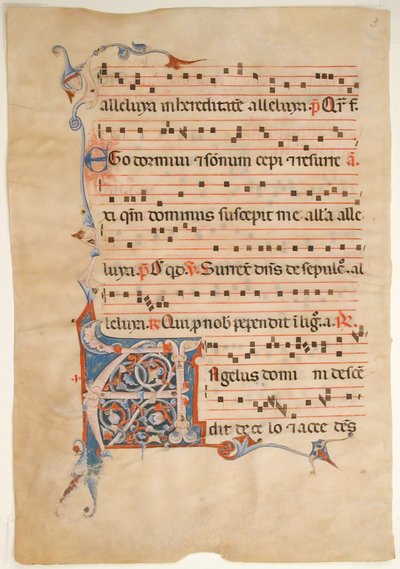 3
alleluya in hereditatē alleluya. p̄ Qr̄ f.
EGo dormiui ⁊ sōnum cepi ⁊ resurre a.
xi qm̄ dominus suscepit me all'a alle
luya. p̄ Ps qd. ꝟ. Surrex̄ dn̄s de sepulc̄. al
leluya. R Qui p nob̄ pependit ī lig̃. a. R.
ANgelus domi ni descē
dit de ce lo ⁊ acce dēs